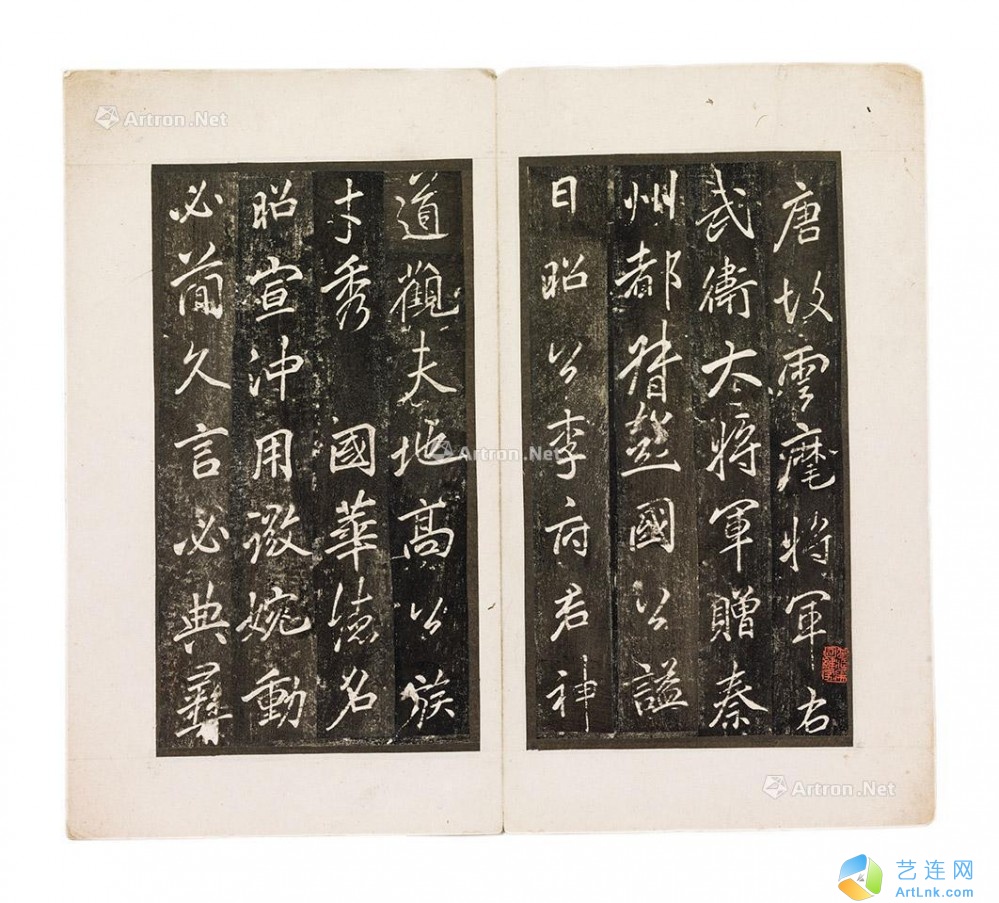 唐故雲麾將軍右
武衛大將軍贈秦
州都督彭國公謚
曰昭公李府君神
道觀夫地高公族
才秀國華德名
昭宣沖用微婉動
必簡久言必典彝
Artron.Net
Artron.Net
Artron.Net
艺连网
ArtLnk.com